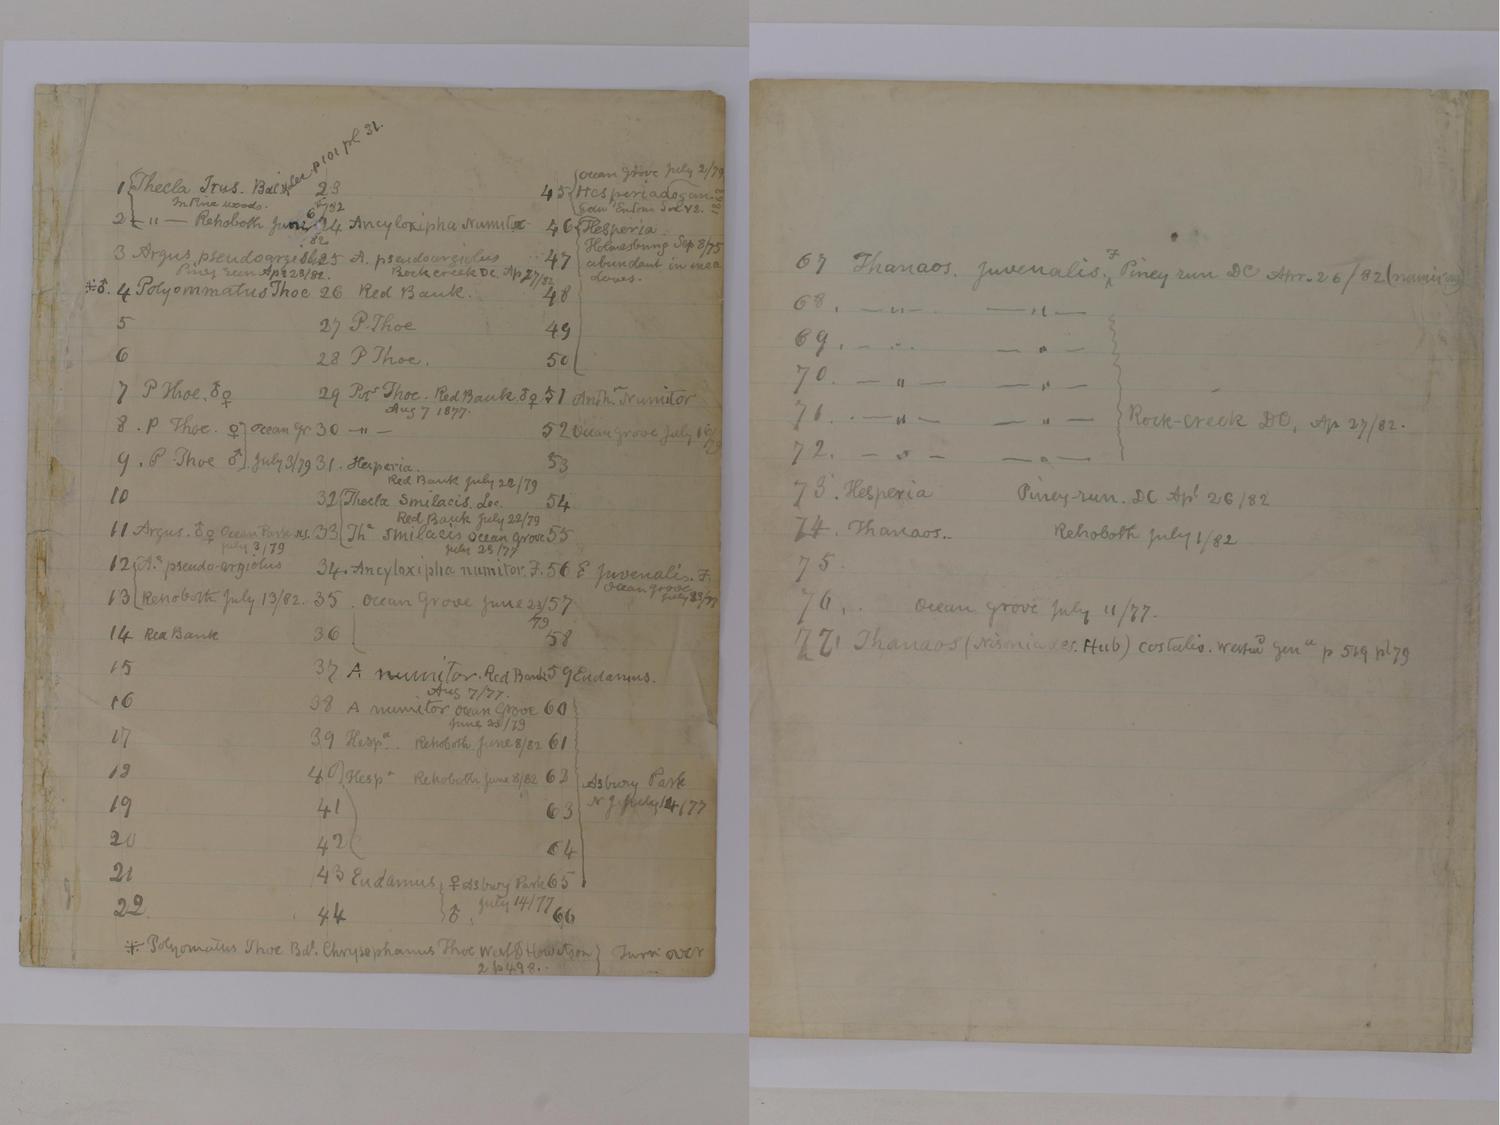 p 101 pl 32.
1 Thecla Irus. Bd
In Pine woods.
2 - " - Rehoboth June 6/82
3 Argus pseudargiolus
Piney run Apr 28/82.
*♂. 4 Polyommatus Thoe
5
6
7 P Thoe. ♂♀
8. P Thoe. ♀ Ocean Gr
9. P Thoe ♂ July 3/79
10
11 Argus. ♂♀ Ocean Park
July 3/79
12 As pseudo-argiolus
13 Rehoboth July 13/82.
14 Red Bank
15
16
17
18
19
20
21
22
23
6/82
24 Ancyloxipha Numitor
25 A. pseudargiolus
Rock creek DC. Ap 27/82
26 Red Bank.
27 P. Thoe
28 P Thoe.
29 Pos Thoe. Red Bank ♂♀
Aug 7 1877.
30 - " -
31. Hesperia.
Red Bank July 22/79
32 Thecla Smilacis. Lec.
Red Bank July 22/79
33 Tha smilacis Ocean grove
July 25/77
34. Ancyloxipha numitor. F.
35. Ocean Grove June 23/79
36
37 A numitor. Red Bank
Aug 7/77.
38 A numitor Ocean Grove
June 23/79
39 Hespa. Rehoboth June 8/82
40 Hespa Rehoboth June 8/82
41
42
43 Eudamus ♀ Asbury Park
July 14/77
44 ♂.
Ocean Grove July 2/79
45 Hesperia
46 Hesperia.
Holmesburg Sep 8/75
47 abundant in mea
dows.
48
49
50
51 Anthn Numitor
52 Ocean grove July
53
54
55
56 E juvenalis. F.
Ocean grove
July 23/77
57
58
59 Eudamus.
60
61
62 Asbury Park
N J. July 14/77
63
64
65
66
* Polyomatus Thoe Bdl. Chrysophanus Thoe West & Hewitson
2 p 498..
Turn over
67 Thanaos. juvenalis. F Piney run DC Apr. 26/82
68. - " - - " -
69. - " - - " -
70. - " - - " -
71. - " - - " -
Rock-creek DC, Ap 27/82.
72. - " - - " -
73. Hesperia Piney-run. DC Apl 26/82
74. Thanaos.. Rehoboth July 1/82
75.
76.. Ocean grove July 11/77.
77. Thanaos (Nisoniades. Hub) costalis. Westwd gena p 519 pl 79